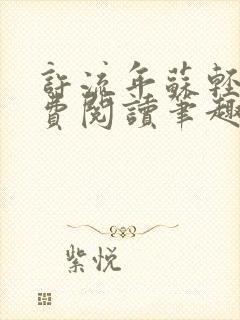 許流年蘇輕
費閱讀筆趣
紫悅